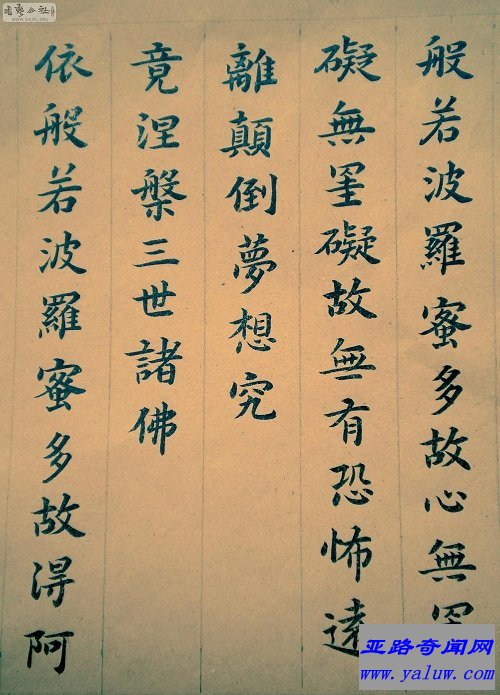 般若波羅蜜多故心無罣
礙無罣礙故無有恐怖遠
離顛倒夢想究
竟涅槃三世諸佛
依般若波羅蜜多故得阿
书艺公社
亚路奇闻网
www.yaluw.com